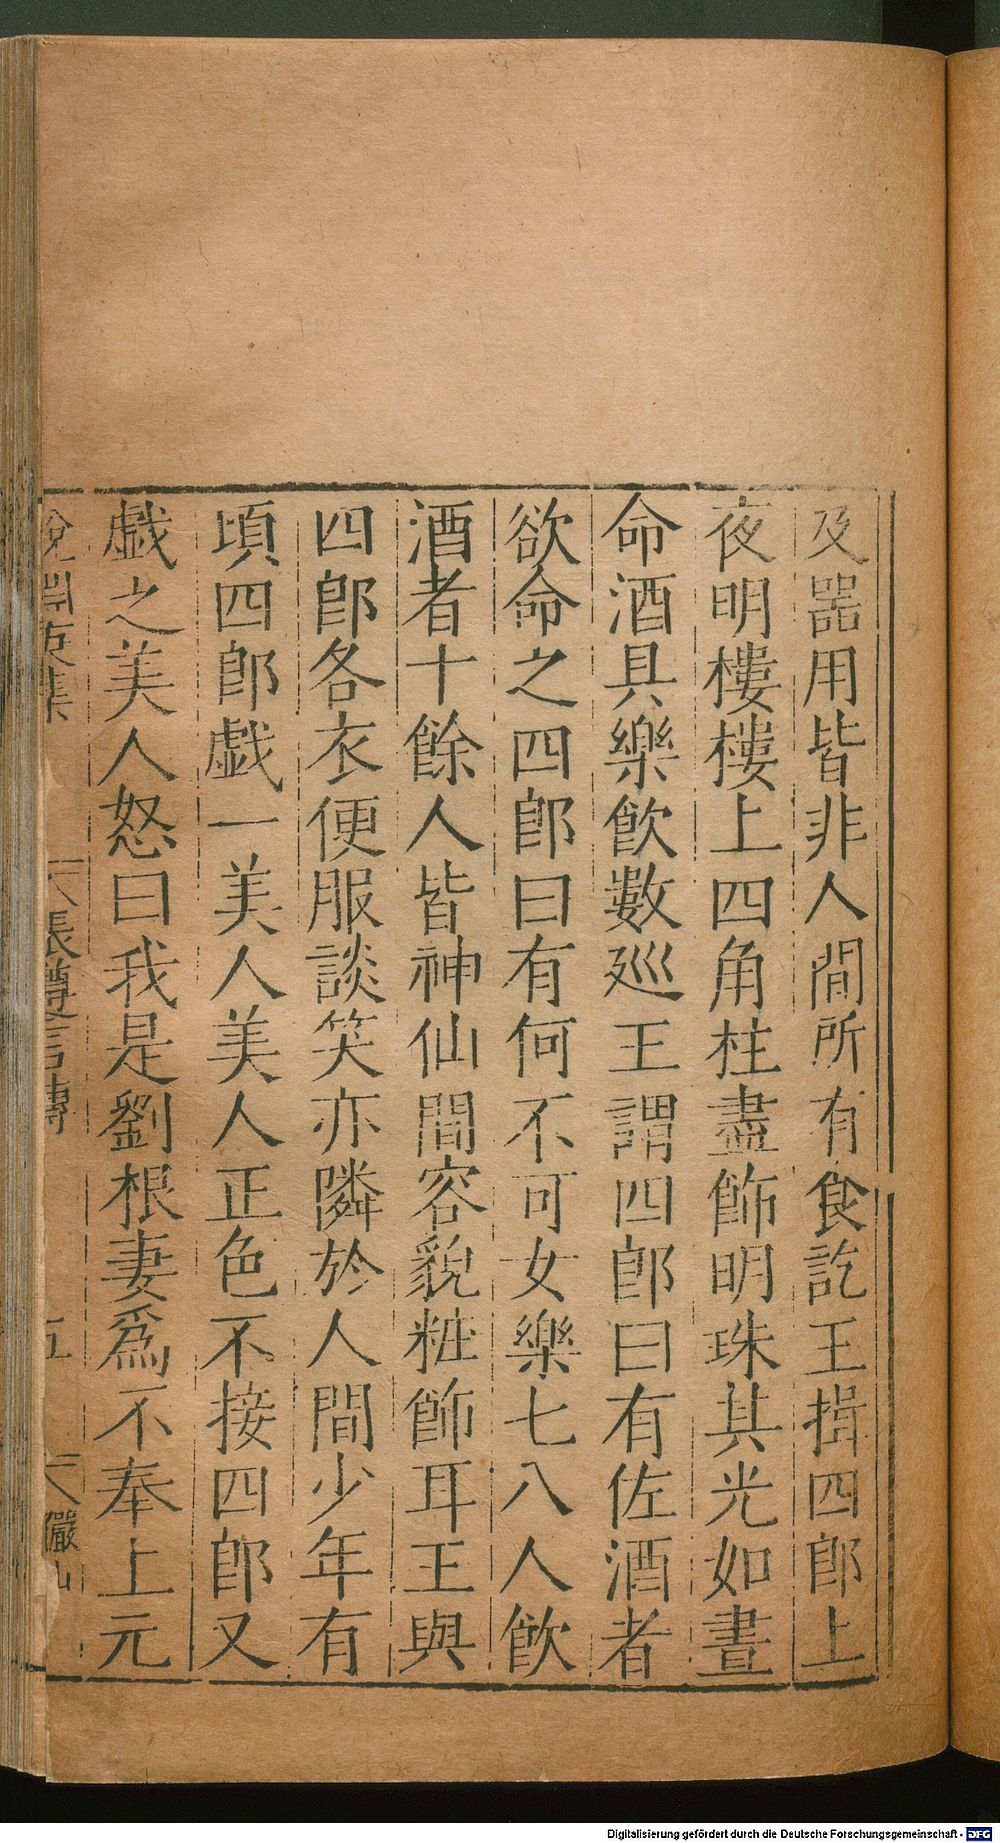 及噐用皆非人間所有食訖王揖四郎上
夜明樓樓上四角柱盡飾明珠其光如晝
命酒具樂飲數廵王謂四郎曰有佐酒者
欲命之四郎曰有何不可女樂七八人飲
酒者十餘人皆神仙間容貌粧飾耳王與
四郎各衣便服談笑亦隣於人間少年有
頃四郎戯一美人美人正色不接四郎又
戯之美人怒曰我是劉根妻爲不奉上元
說淵戊集 張遵言傳 五 儼山
Digitalisierung gefördert durch die Deutsche Forschungsgemeinschaft - DFG